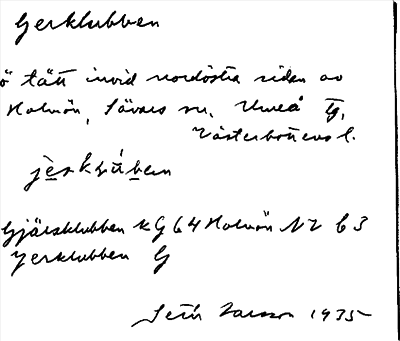 Gerklubben
ö tätt invid nordöstra sidan av
Holmön, Sävars sn, Umeå tg,
Västerbottens l.
jèskl̥úben
Gjärsklubben KG 64 Holmön NV b 3
Yerklubben G
Larsson 1935